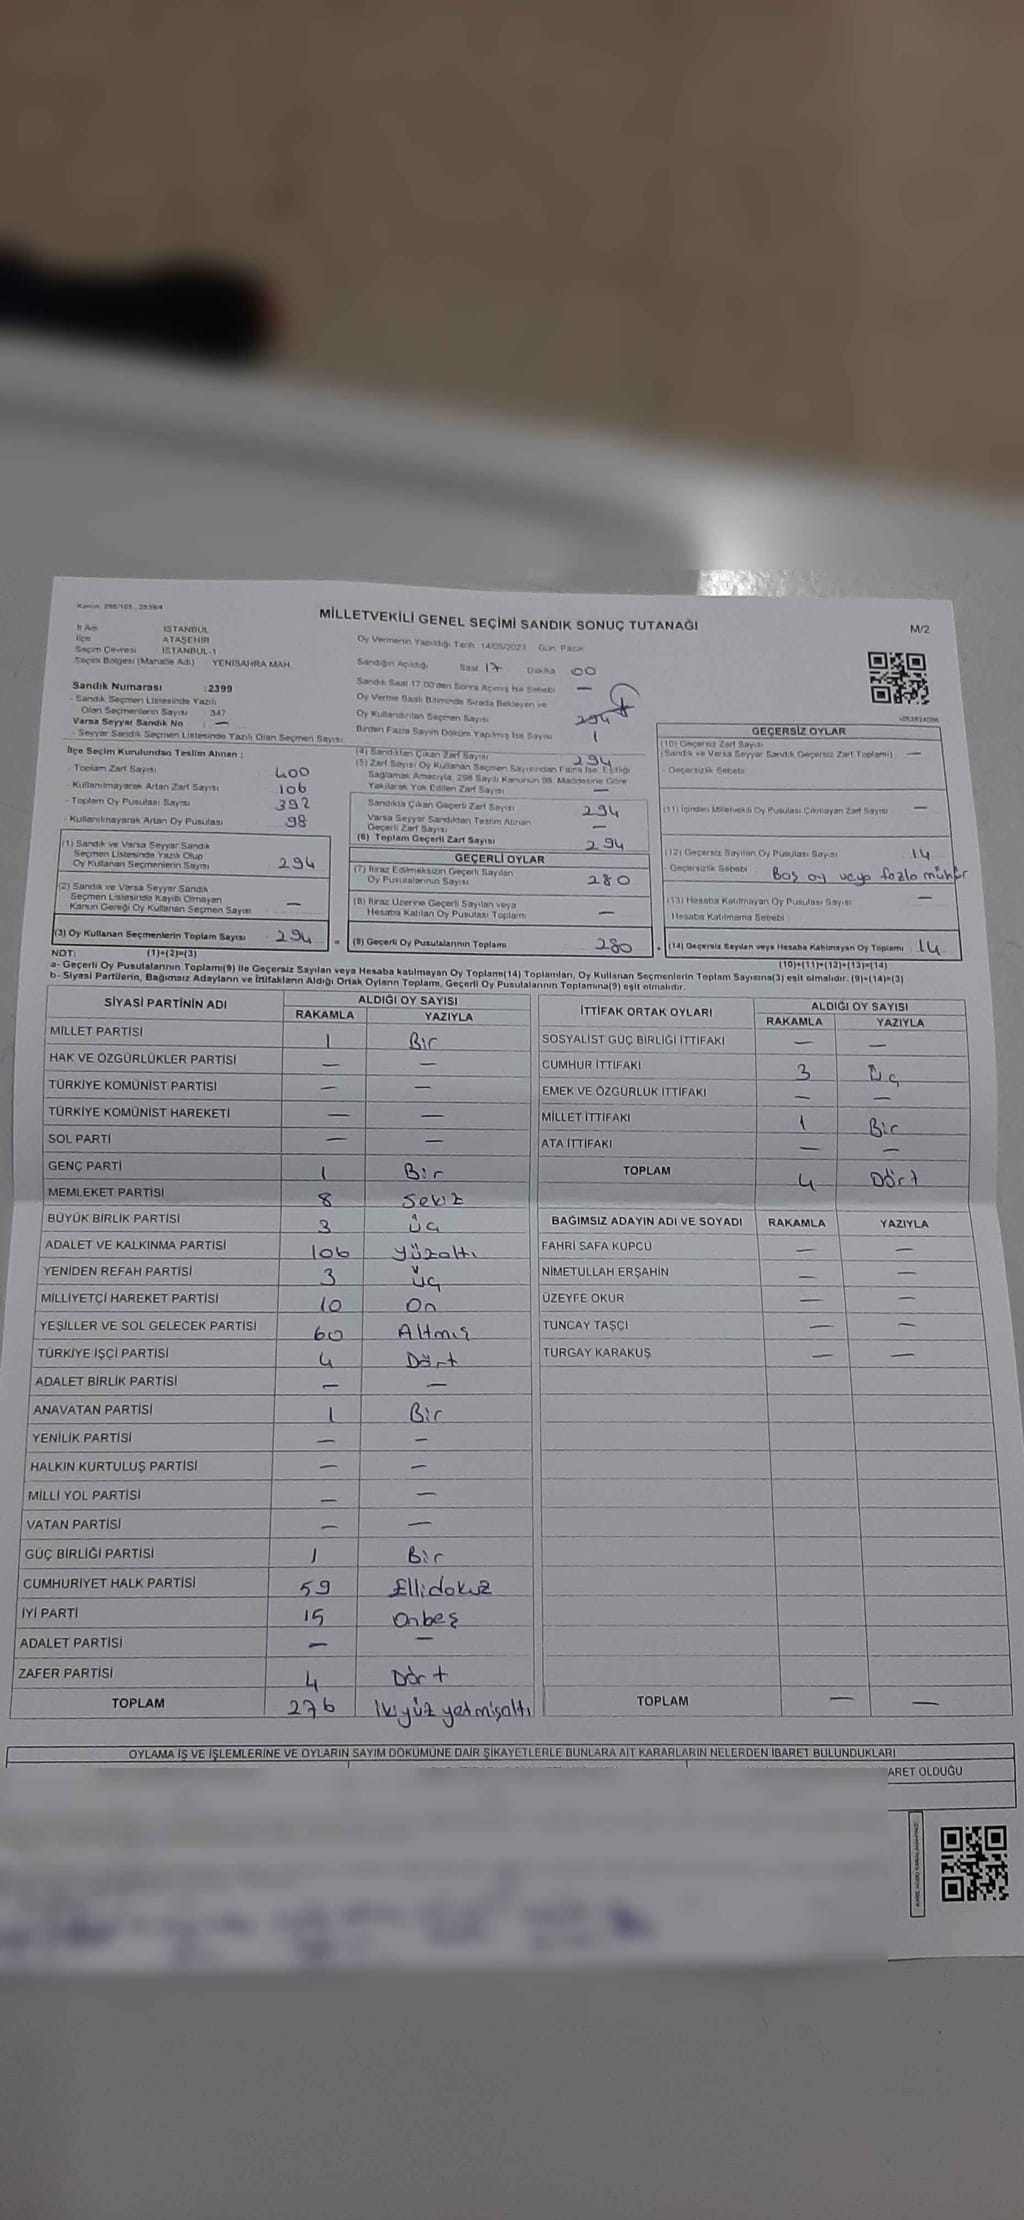 Kanun: 298/105 , 2839/4
MİLLETVEKİLİ GENEL SEÇİMİ SANDIK SONUÇ TUTANAĞI
M/2
İl Adı İSTANBUL
İlçe ATAŞEHİR
Seçim Çevresi İSTANBUL-1
Seçim Bölgesi (Mahalle Adı) YENİSAHRA MAH.
Sandık Numarası :2399
- Sandık Seçmen Listesinde Yazılı
Olan Seçmenlerin Sayısı : 347
Varsa Seyyar Sandık No : —
- Seyyar Sandık Seçmen Listesinde Yazılı Olan Seçmen Sayısı:
Oy Vermenin Yapıldığı Tarih :14/05/2023 Gün: Pazar
Sandığın Açıldığı Saat 17 Dakika 00
Sandık Saat 17.00'den Sonra Açılmış İse Sebebi —
Oy Verme Saati Bitiminde Sırada Bekleyen ve
Oy Kullandırılan Seçmen Sayısı 294
Birden Fazla Sayım Döküm Yapılmış İse Sayısı 1
İlçe Seçim Kurulundan Teslim Alınan :
- Toplam Zarf Sayısı 400
- Kullanılmayarak Artan Zarf Sayısı 106
- Toplam Oy Pusulası Sayısı 392
- Kullanılmayarak Artan Oy Pusulası 98
(1) Sandık ve Varsa Seyyar Sandık
Seçmen Listesinde Yazılı Olup
Oy Kullanan Seçmenlerin Sayısı 294
(2) Sandık ve Varsa Seyyar Sandık
Seçmen Listesinde Kayıtlı Olmayan
Kanun Gereği Oy Kullanan Seçmen Sayısı —
(3) Oy Kullanan Seçmenlerin Toplam Sayısı 294 =
(4) Sandıktan Çıkan Zarf Sayısı 294
(5) Zarf Sayısı Oy Kullanan Seçmen Sayısından Fazla İse, Eşitliği
Sağlamak Amacıyla, 298 Sayılı Kanunun 98. Maddesine Göre
Yakılarak Yok Edilen Zarf Sayısı —
Sandıkta Çıkan Geçerli Zarf Sayısı 294
Varsa Seyyar Sandıktan Teslim Alınan
Geçerli Zarf Sayısı —
(6) Toplam Geçerli Zarf Sayısı 294
GEÇERLİ OYLAR
(7) İtiraz Edilmeksizin Geçerli Sayılan
Oy Pusulalarının Sayısı 280
(8) İtiraz Üzerine Geçerli Sayılan veya
Hesaba Katılan Oy Pusulası Toplamı —
(9) Geçerli Oy Pusulalarının Toplamı 280
GEÇERSİZ OYLAR
(10) Geçersiz Zarf Sayısı
(Sandık ve Varsa Seyyar Sandık Geçersiz Zarf Toplamı) —
- Geçersizlik Sebebi
(11) İçinden Milletvekili Oy Pusulası Çıkmayan Zarf Sayısı —
(12) Geçersiz Sayılan Oy Pusulası Sayısı 14
- Geçersizlik Sebebi Boş oy veya fazla mühür
(13) Hesaba Katılmayan Oy Pusulası Sayısı —
Hesaba Katılmama Sebebi
(14) Geçersiz Sayılan veya Hesaba Katılmayan Oy Toplamı 14
NOT: (1)+(2)=(3)
(10)+(11)+(12)+(13)=(14)
a- Geçerli Oy Pusulalarının Toplamı(9) ile Geçersiz Sayılan veya Hesaba katılmayan Oy Toplamı(14) Toplamları, Oy Kullanan Seçmenlerin Toplam Sayısına(3) eşit olmalıdır. (9)+(14)=(3)
b- Siyasi Partilerin, Bağımsız Adayların ve İttifakların Aldığı Ortak Oyların Toplamı, Geçerli Oy Pusulalarının Toplamına(9) eşit olmalıdır.
SİYASİ PARTİNİN ADI ALDIĞI OY SAYISI
RAKAMLA YAZIYLA
MİLLET PARTİSİ 1 Bir
HAK VE ÖZGÜRLÜKLER PARTİSİ — —
TÜRKİYE KOMÜNİST PARTİSİ — —
TÜRKİYE KOMÜNİST HAREKETİ — —
SOL PARTİ — —
GENÇ PARTİ 1 Bir
MEMLEKET PARTİSİ 8 Sekiz
BÜYÜK BİRLİK PARTİSİ 3 Üç
ADALET VE KALKINMA PARTİSİ 106 Yüzaltı
YENİDEN REFAH PARTİSİ 3 Üç
MİLLİYETÇİ HAREKET PARTİSİ 10 On
YEŞİLLER VE SOL GELECEK PARTİSİ 60 Altmış
TÜRKİYE İŞÇİ PARTİSİ 4 Dört
ADALET BİRLİK PARTİSİ — —
ANAVATAN PARTİSİ 1 Bir
YENİLİK PARTİSİ — —
HALKIN KURTULUŞ PARTİSİ — —
MİLLİ YOL PARTİSİ — —
VATAN PARTİSİ — —
GÜÇ BİRLİĞİ PARTİSİ 1 Bir
CUMHURİYET HALK PARTİSİ 59 Ellidokuz
İYİ PARTİ 15 Onbeş
ADALET PARTİSİ — —
ZAFER PARTİSİ 4 Dört
TOPLAM 276 İkiyüz yetmişaltı
İTTİFAK ORTAK OYLARI ALDIĞI OY SAYISI
RAKAMLA YAZIYLA
SOSYALİST GÜÇ BİRLİĞİ İTTİFAKI — —
CUMHUR İTTİFAKI 3 Üç
EMEK VE ÖZGÜRLÜK İTTİFAKI — —
MİLLET İTTİFAKI 1 Bir
ATA İTTİFAKI — —
TOPLAM 4 Dört
BAĞIMSIZ ADAYIN ADI VE SOYADI RAKAMLA YAZIYLA
FAHRİ SAFA KÜPCÜ — —
NİMETULLAH ERŞAHİN — —
ÜZEYFE OKUR — —
TUNCAY TAŞÇI — —
TURGAY KARAKUŞ — —
TOPLAM — —
OYLAMA İŞ VE İŞLEMLERİNE VE OYLARIN SAYIM DÖKÜMÜNE DAİR ŞİKAYETLERLE BUNLARA AİT KARARLARIN NELERDEN İBARET BULUNDUKLARI
ARET OLDUĞU